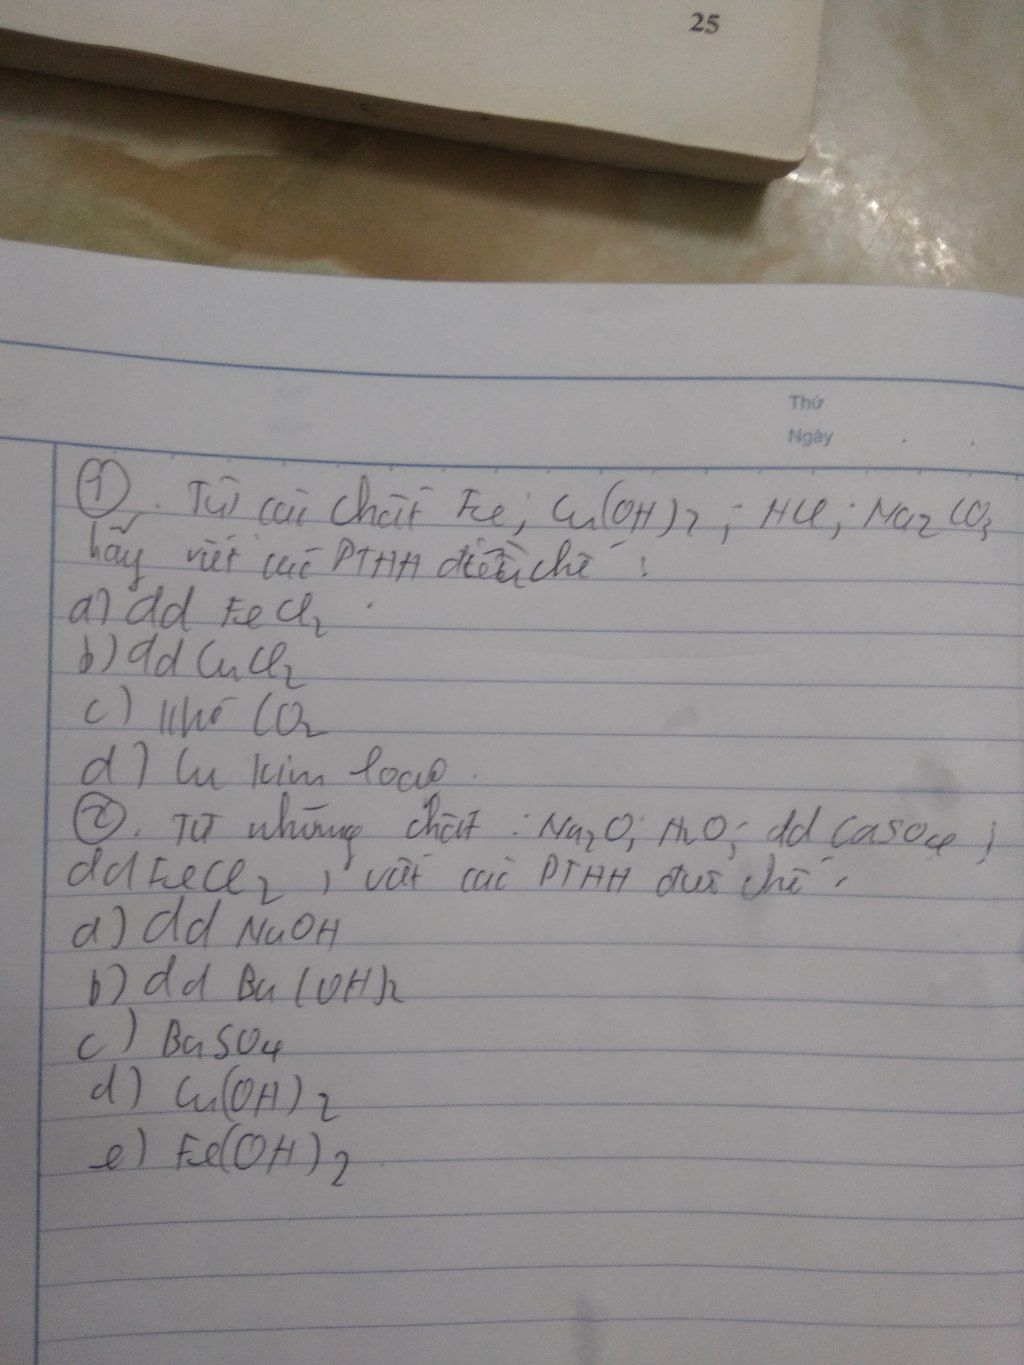 25
Thứ
Ngày
①. Từ các chất Fe; Cu(OH)2; HCl; Na2CO3
hãy viết các PTHH điều chế :
a) dd FeCl2
b) dd CuCl2
c) khí CO2
d) Cu kim loại.
②. Từ những chất : Na2O; H2O; dd CaSO4;
dd FeCl2, viết các PTHH điề chế:
a) dd NaOH
b) dd Ba(OH)2
c) BaSO4
d) Cu(OH)2
e) Fe(OH)2